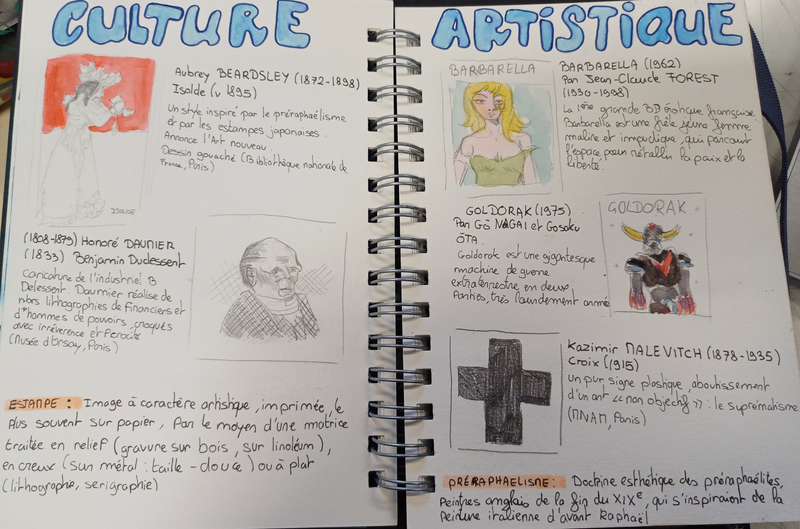 CULTURE
Aubrey BEARDSLEY (1872-1898)
Isolde (v 1895)
Un style inspiré par le préraphaélisme
et par les estampes japonaises.
Annonce l'Art nouveau.
Dessin gouaché (Bibliothèque nationale de
France, Paris)
ISOLDE
(1808-1879) Honoré DAUMIER
(1833) Benjamin Dudessent
Caricature de l'industriel B
Delessent Daumier réalise de
nbrs lithographies de financiers et
d'hommes de pouvoirs, croqués
avec irrévérence et férocité
(Musée d'Orsay, Paris)
ESTAMPE : Image à caractère artistique, imprimée, le
plus souvent sur papier, par le moyen d'une matrice
traitée en relief (gravure sur bois, sur linoléum),
en creux (sur métal : taille-douce) ou à plat
(lithographe, serigraphie)
ARTISTIQUE
BARBARELLA
BARBARELLA (1962)
Par Jean-Claude FOREST
(1930-1998)
La 1ère grande BD érotique française
Barbarella est une frêle jeune femme
maline et impudique, qui parcourt
l'espace pour rétablir la paix et la
liberté.
GOLDORAK (1975)
Par Gō NAGAI et Gosaku
ŌTA.
Goldorak est une gigantesque
machine de guerre
extraterrestre, en deux
parties, très lourdement armé
GOLDORAK
Kazimir MALEVITCH (1878-1935)
Croix (1915)
un pur signe plastique, aboutissement
d'un art << non objectif >> : le suprématisme
(MNAM, Paris)
PRÉRAPHAELISME : Doctrine esthétique des préraphaélites,
Peintres anglais de la fin du XIXe, qui s'inspiraient de la
peinture italienne d'avant Raphaël